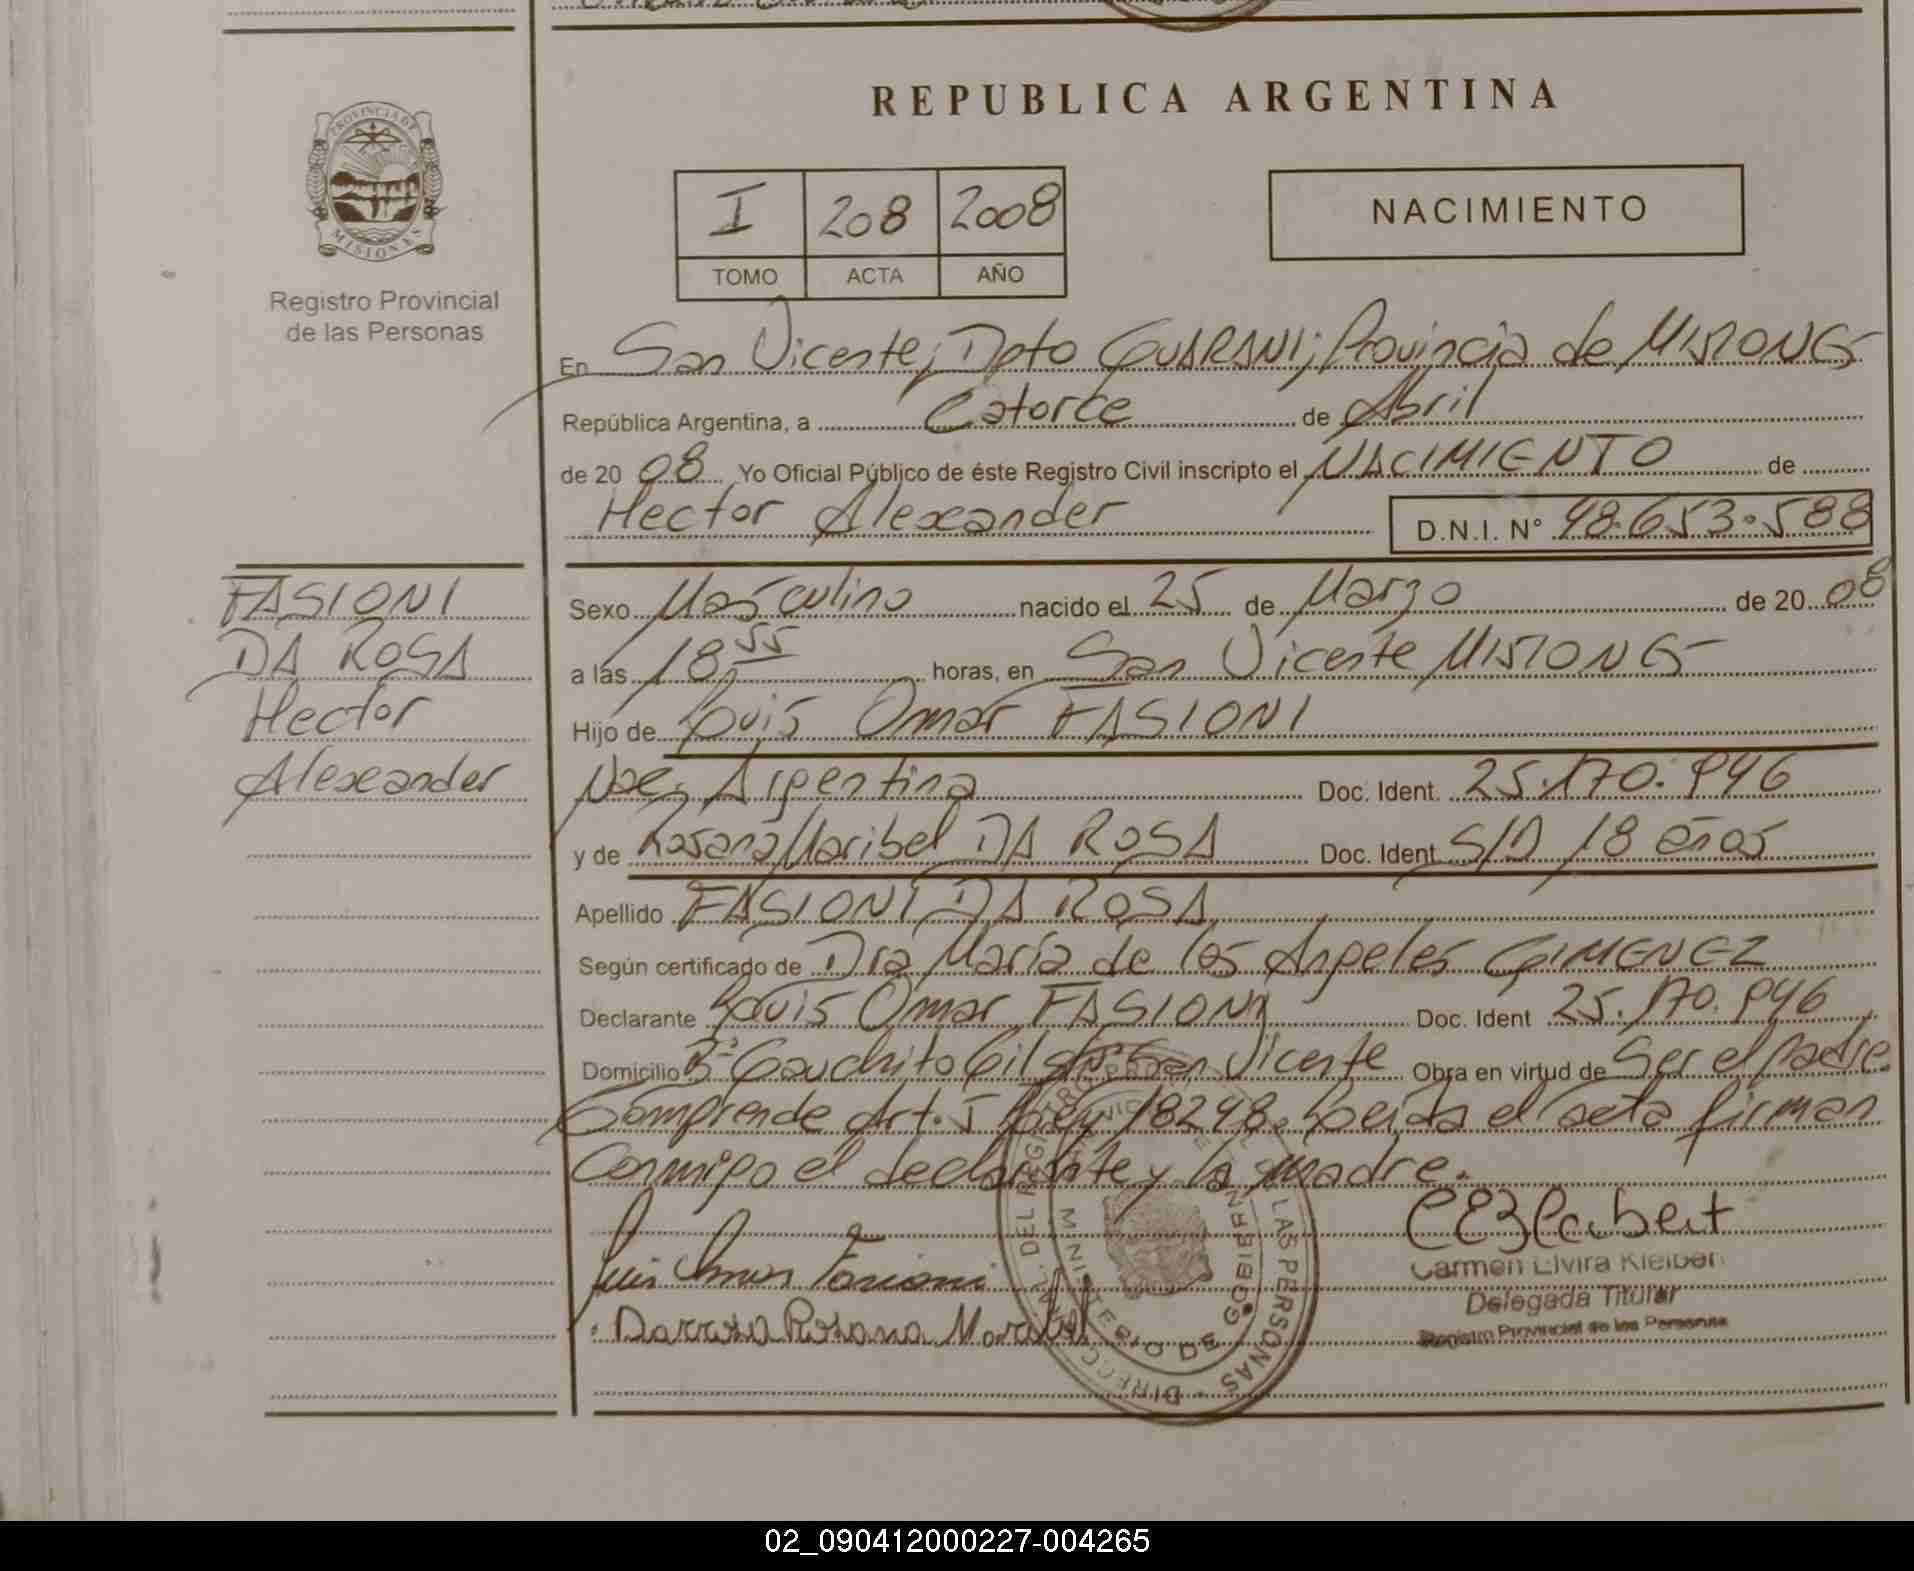 REPUBLICA ARGENTINA
PROVINCIA DE
MISIONES
Registro Provincial
de las Personas
I 208 2008
TOMO ACTA AÑO
NACIMIENTO
En San Vicente, Dpto GUARANI; Provincia de MISIONES
República Argentina, a Catorce de Abril
de 2008 Yo Oficial Público de éste Registro Civil inscripto el NACIMIENTO de
Hector Alexander D.N.I. N° 48.653.588
FASIONI
DA ROSA
Hector
Alexander
Sexo Masculino nacido el 25 de Marzo de 2008
a las 18,55 horas, en San Vicente MISIONES
Hijo de Luis Omar FASIONI
Nac. Argentina Doc. Ident. 25.170.946
y de Rosana Maribel DA ROSA Doc. Ident. S/D 18 años
Apellido FASIONI DA ROSA
Según certificado de Dra María de los Angeles GIMENEZ
Declarante Luis Omar FASIONI Doc. Ident 25.170.946
Domicilio B° Gauchito Gil San Vicente Obra en virtud de Ser el Padre.
Comprende Art. I Ley 18248. Leída el acta firman
Conmigo el declarante y la madre.
Luis Omar Fasioni
Darrosa Rosana Maribel
Carmen Elvira Kleibert
Delegada Titular
Registro Provincial de las Personas
DIRECC DEL REGISTRO PROVINCIAL DE LAS PERSONAS
MINISTERIO DE GOBIERNO
02_090412000227-004265